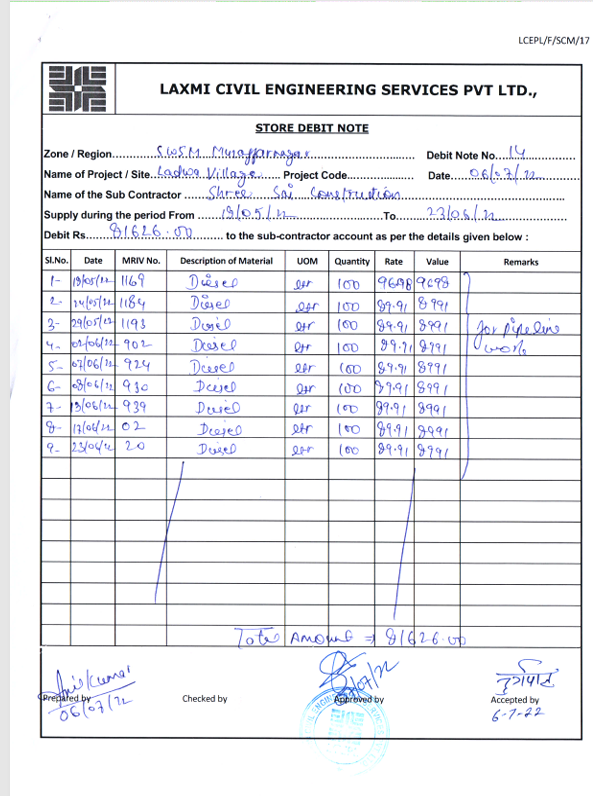 LCEPL/F/SCM/17
LAXMI CIVIL ENGINEERING SERVICES PVT LTD.,
STORE DEBIT NOTE
Zone / Region SWSM Muzaffarnagar Debit Note No. 14
Name of Project / Site. Ladwa Village Project Code. Date. 06/07/22
Name of the Sub Contractor Shree Sai Construction
Supply during the period From 19/05/22 To 23/06/22
Debit Rs. 81626.00 to the sub-contractor account as per the details given below :
Sl.No. Date MRIV No. Description of Material UOM Quantity Rate Value Remarks
1- 19/05/22 1169 Diesel ltr 100 96.98 9698
2- 24/05/22 1184 Diesel ltr 100 89.91 8991
3- 29/05/22 1193 Diesel ltr 100 89.91 8991 for Pipeline
4- 02/06/22 902 Diesel ltr 100 89.91 8991 work
5- 07/06/22 924 Diesel ltr 100 89.91 8991
6- 08/06/22 930 Diesel ltr 100 89.91 8991
7- 13/06/22 939 Diesel ltr 100 89.91 8991
8- 17/06/22 02 Diesel ltr 100 89.91 8991
9- 23/06/22 20 Diesel ltr 100 89.91 8991
Total Amount => 81626.00
Anil Kumar
Prepared by Checked by Approved by Accepted by
06/07/22 07/22 6-7-22